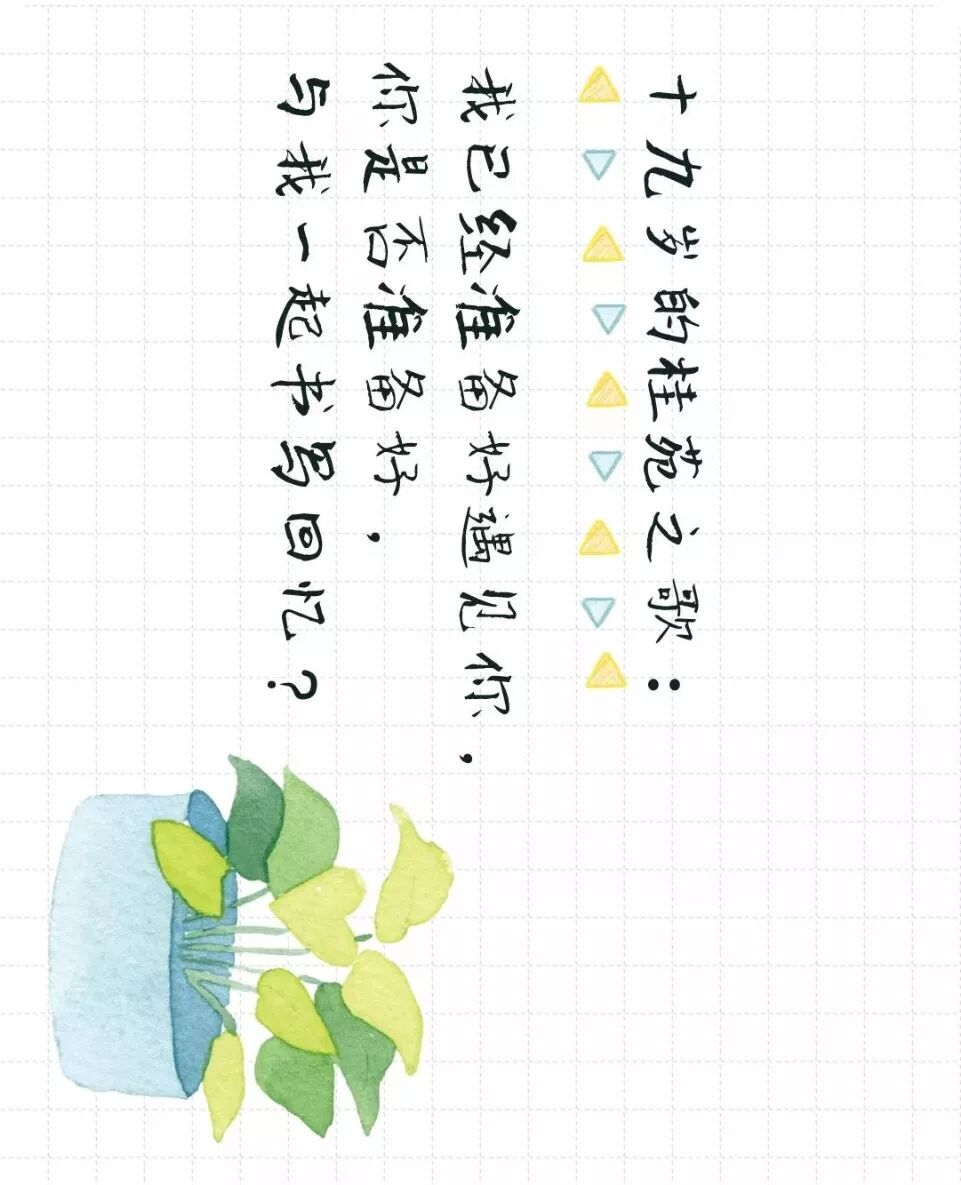 十九岁的桂苑之歌：
我已经准备好遇见你，
你是否准备好，
与我一起书写回忆？